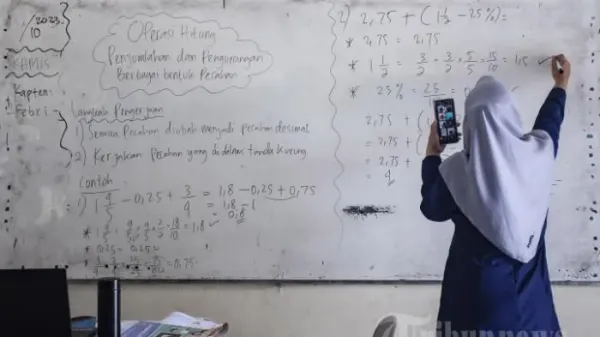 2023
10
KAMIS
Kapten:
Febri
Operasi Hitung
Penjumlahan dan Pengurangan
Berbagai bentuk Pecahan
Langkah Pengerjaan
1) Semua Pecahan diubah menjadi pecahan desimal
2) Kerjakan Pecahan yang di dalam tanda kurung
Contoh
- 0,25 + 3/4 = 1,8 - 0,25 + 0,75
= 1,8 - 1
= 0,8
= 18/10 = 1,8
* 0,25 =
= 0,75
2) 2,75 + (1 1/2 - 25%) =
* 2,75 = 2,75
* 1 1/2 = 3/2 = 3/2 × 5/5 = 15/10 = 1,5
* 25% = 25
2,75 + (
= 2,75 +
= 2,75 +
= 4
Tribunnews